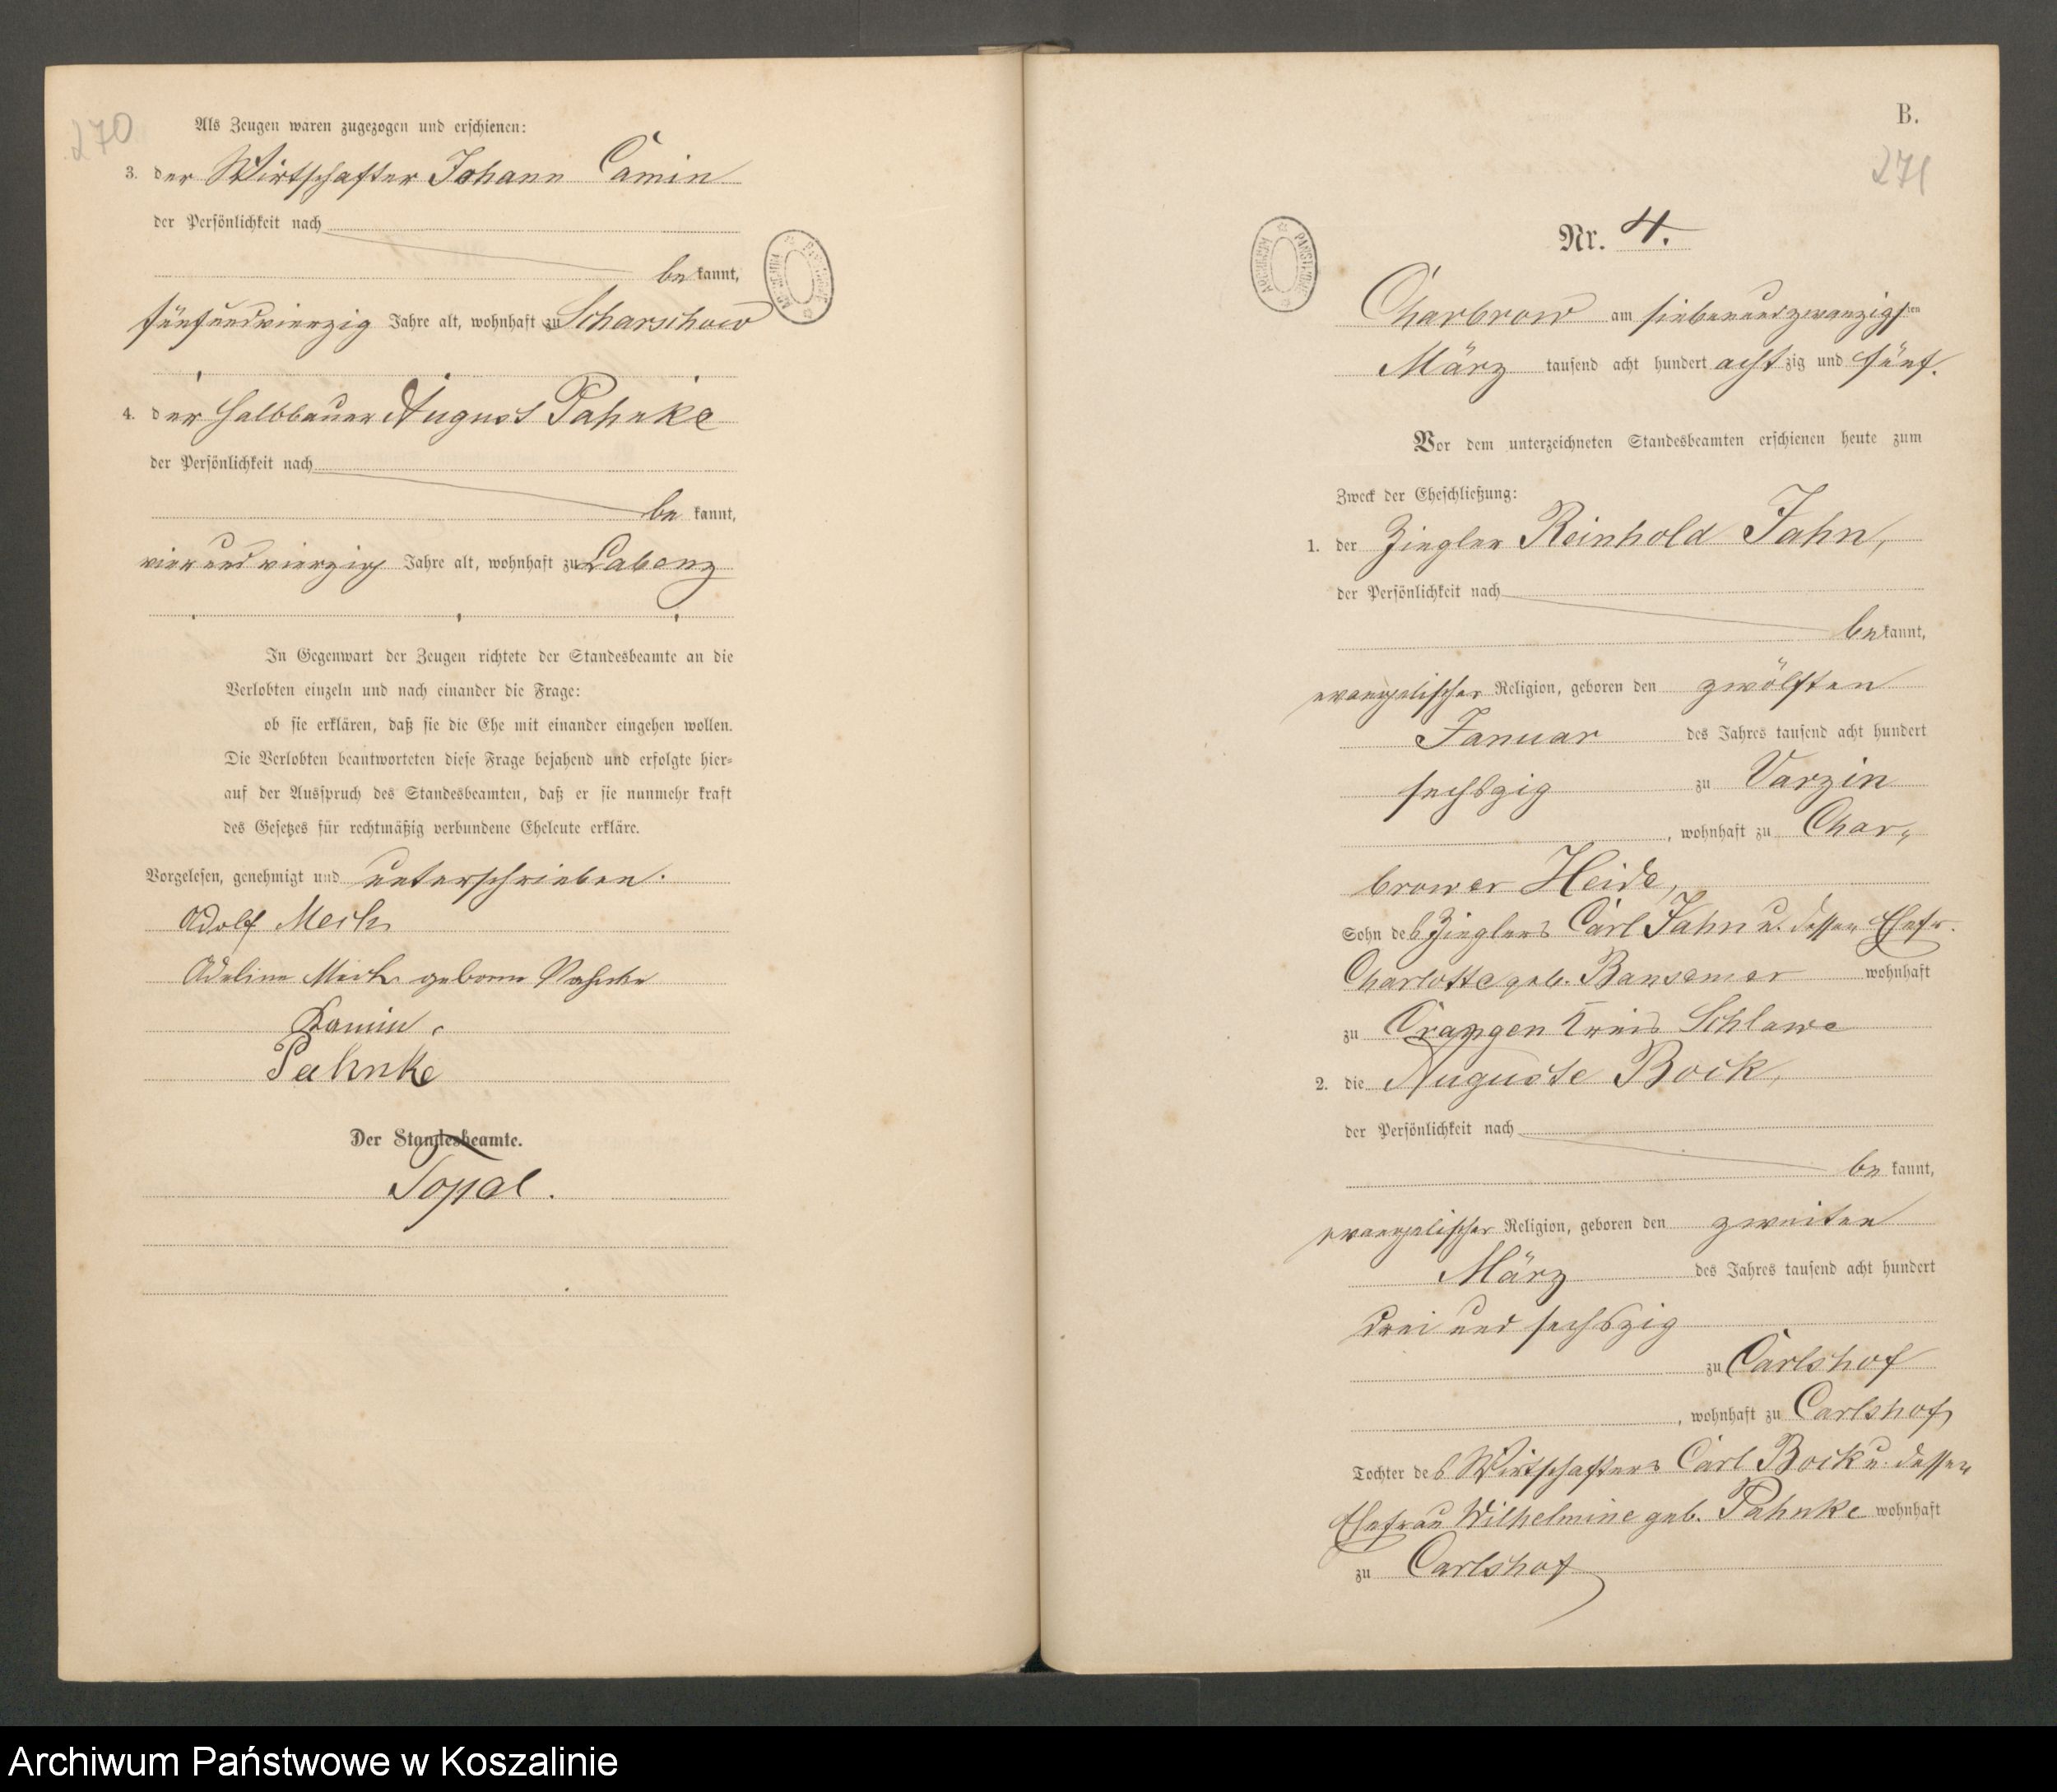 270
Als Zeugen waren zugezogen und erschienen:
3. der Wirtschafter Johann Camin
der Persönlichkeit nach
be kannt,
fünfundvierzig Jahre alt, wohnhaft zu Scharschow
4. der Halbbauer August Pahnke
der Persönlichkeit nach
be kannt,
vier und vierzig Jahre alt, wohnhaft zu Labenz
In Gegenwart der Zeugen richtete der Standesbeamte an die
Verlobten einzeln und nach einander die Frage:
ob sie erklären, daß sie die Ehe mit einander eingehen wollen.
Die Verlobten beantworteten diese Frage bejahend und erfolgte hier-
auf der Ausspruch des Standesbeamten, daß er sie nunmehr kraft
des Gesetzes für rechtmäßig verbundene Eheleute erkläre.
Vorgelesen, genehmigt und unterschrieben.
Adolf
Adeline geborne Pahnke
Kamin.
Pahnke
Der Standesbeamte.
Topal.
B.
271
Nr. 4.
Charbrow am siebenundzwanzigsten
März tausend acht hundert achtzig und fünf.
Vor dem unterzeichneten Standesbeamten erschienen heute zum
Zweck der Eheschließung:
1. der Ziegler Reinhold Jahn,
der Persönlichkeit nach
be kannt,
evangelischer Religion, geboren den zwölften
Januar des Jahres tausend acht hundert
sechszig zu Varzin
, wohnhaft zu Char„
brower Heide,
Sohn des Zieglers Carl Jahn u. dessen Ehefr.
Charlotte geb. Bansemer wohnhaft
zu Crangen Kreis Schlawe
2. die Auguste Bock,
der Persönlichkeit nach
be kannt,
evangelischer Religion, geboren den zweiten
März des Jahres tausend acht hundert
drei und sechszig
zu Carlshof
, wohnhaft zu Carlshof,
Tochter des Wirtschafters Carl Bock u. dessen
Ehefrau Wilhelmine geb. Pahnke wohnhaft
zu Carlshof
Archiwum Państwowe w Koszalinie